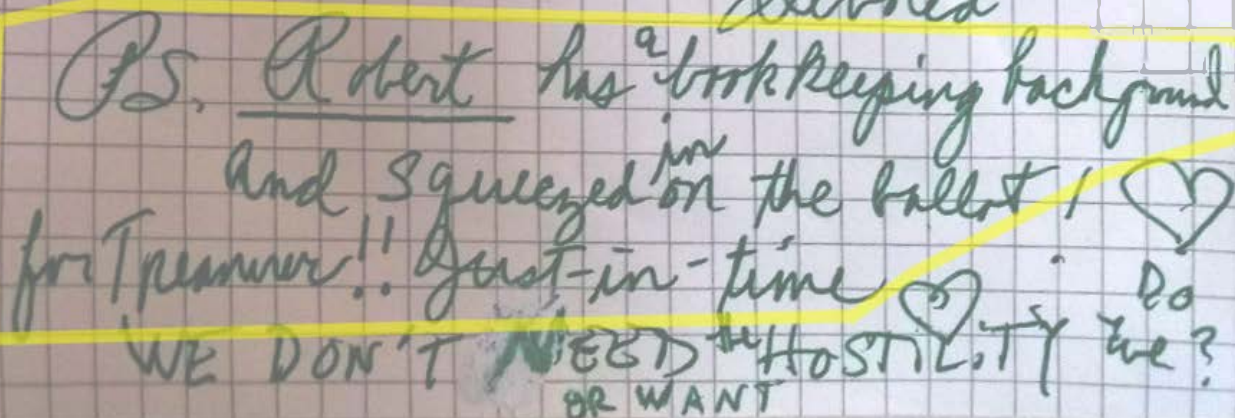 PS. Robert has a bookkeeping background
and squeezed in on the ballot!
for Treasurer!! Just-in-time
WE DON'T NEED the HOSTILITY Do we?
OR WANT